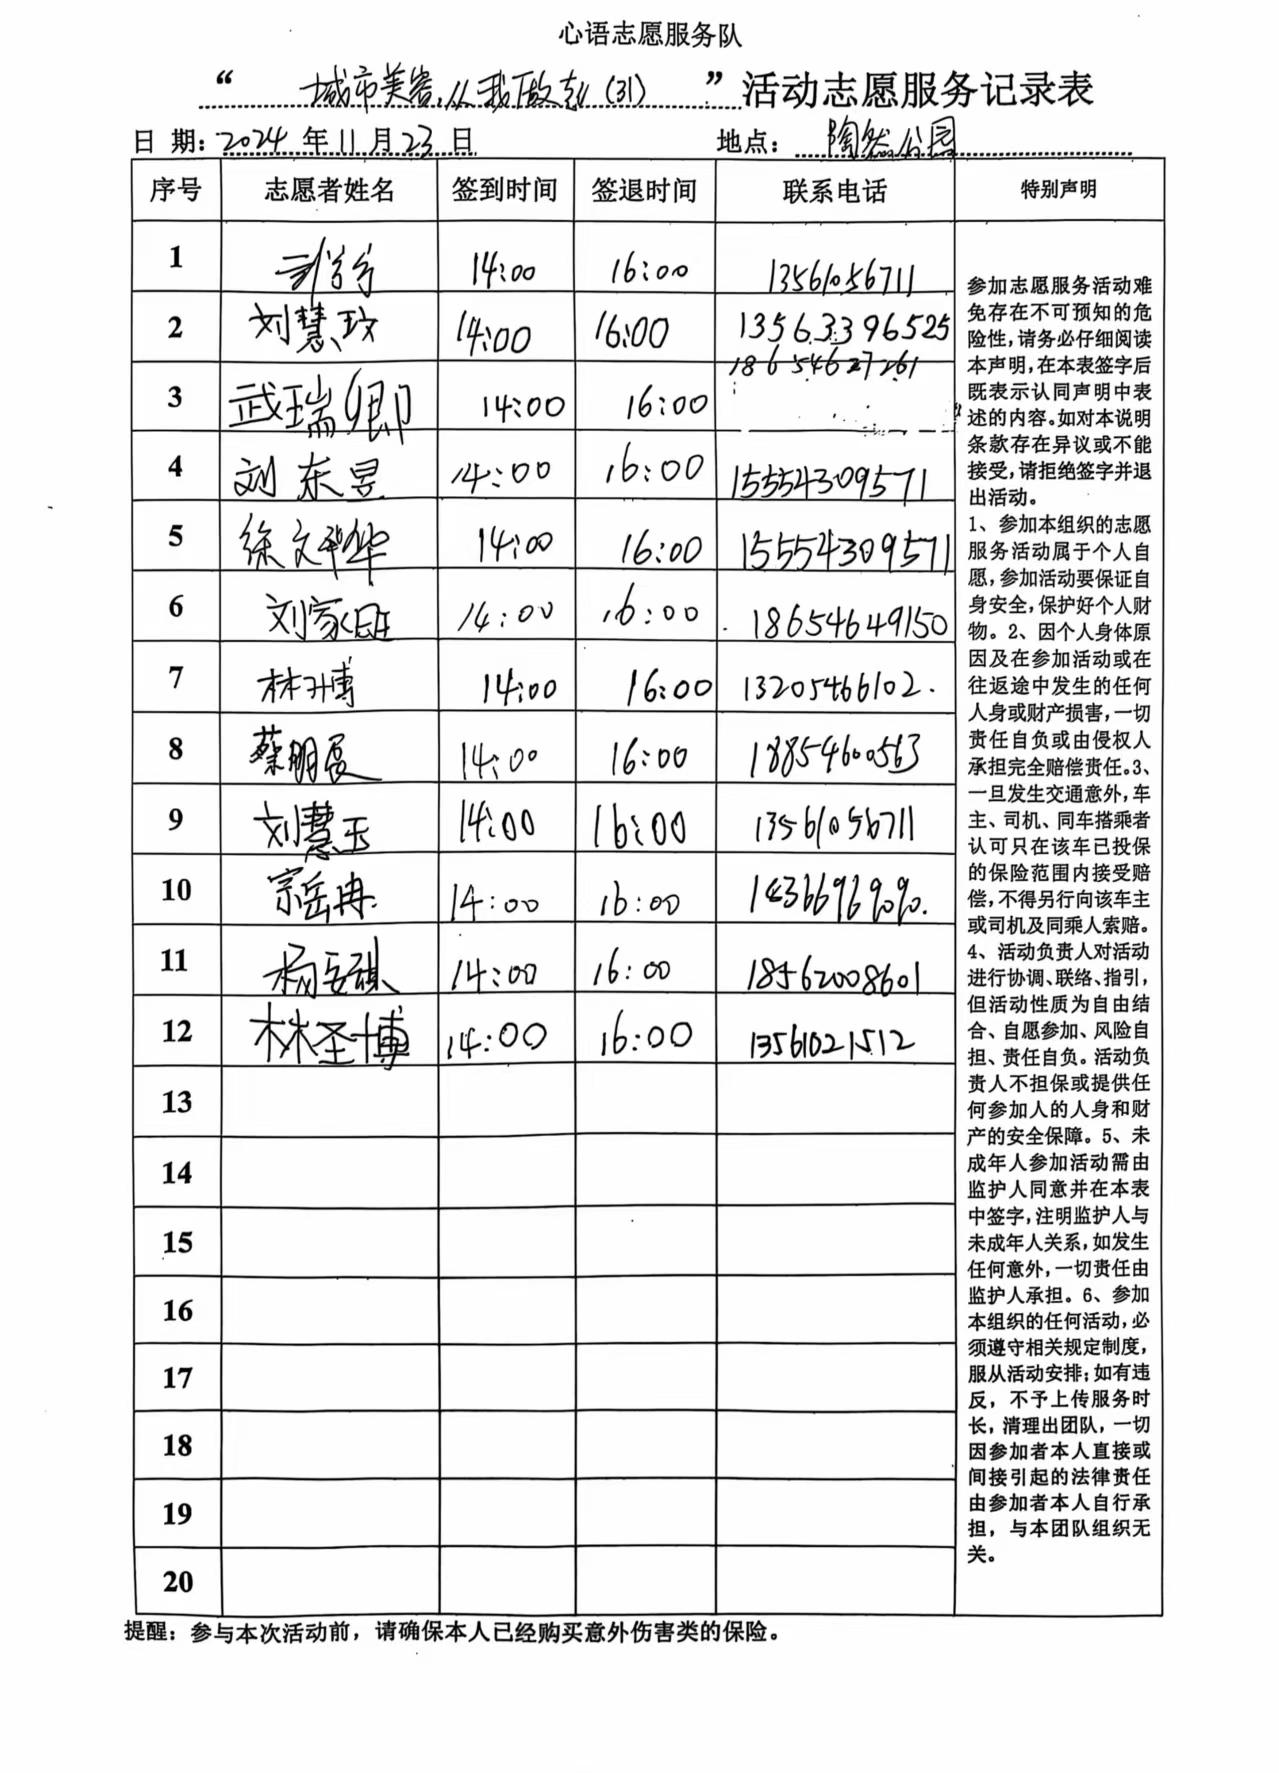 心语志愿服务队
“ 城市美容,从我做起(31) ”活动志愿服务记录表
日 期:2024 年 11 月 23 日 地点: 陶然公园
序号 志愿者姓名 签到时间 签退时间 联系电话 特别声明
1 14:00 16:00 13561056711
2 刘慧玟 14:00 16:00 13563396525
3 武瑞卿 14:00 16:00 18654627261
4 刘东昱 14:00 16:00 15554309571
5 徐文华 14:00 16:00 15554309571
6 刘家旺 14:00 16:00 18654649150
7 林博 14:00 16:00 13205466102.
8 蔡明晨 14:00 16:00 18854600563
9 刘慧玉 14:00 16:00 13561056711
10 宗岳冉 14:00 16:00
11 杨安琪 14:00 16:00 18562008601
12 林圣博 14:00 16:00 13561021512
13
14
15
16
17
18
19
20
参加志愿服务活动难
免存在不可预知的危
险性,请务必仔细阅读
本声明,在本表签字后
既表示认同声明中表
述的内容。如对本说明
条款存在异议或不能
接受,请拒绝签字并退
出活动。
1、参加本组织的志愿
服务活动属于个人自
愿,参加活动要保证自
身安全,保护好个人财
物。2、因个人身体原
因及在参加活动或在
往返途中发生的任何
人身或财产损害,一切
责任自负或由侵权人
承担完全赔偿责任。3、
一旦发生交通意外,车
主、司机、同车搭乘者
认可只在该车已投保
的保险范围内接受赔
偿,不得另行向该车主
或司机及同乘人索赔。
4、活动负责人对活动
进行协调、联络、指引,
但活动性质为自由结
合、自愿参加、风险自
担、责任自负。活动负
责人不担保或提供任
何参加人的人身和财
产的安全保障。5、未
成年人参加活动需由
监护人同意并在本表
中签字,注明监护人与
未成年人关系,如发生
任何意外,一切责任由
监护人承担。6、参加
本组织的任何活动,必
须遵守相关规定制度,
服从活动安排;如有违
反,不予上传服务时
长,清理出团队,一切
因参加者本人直接或
间接引起的法律责任
由参加者本人自行承
担,与本团队组织无
关。
提醒:参与本次活动前,请确保本人已经购买意外伤害类的保险。